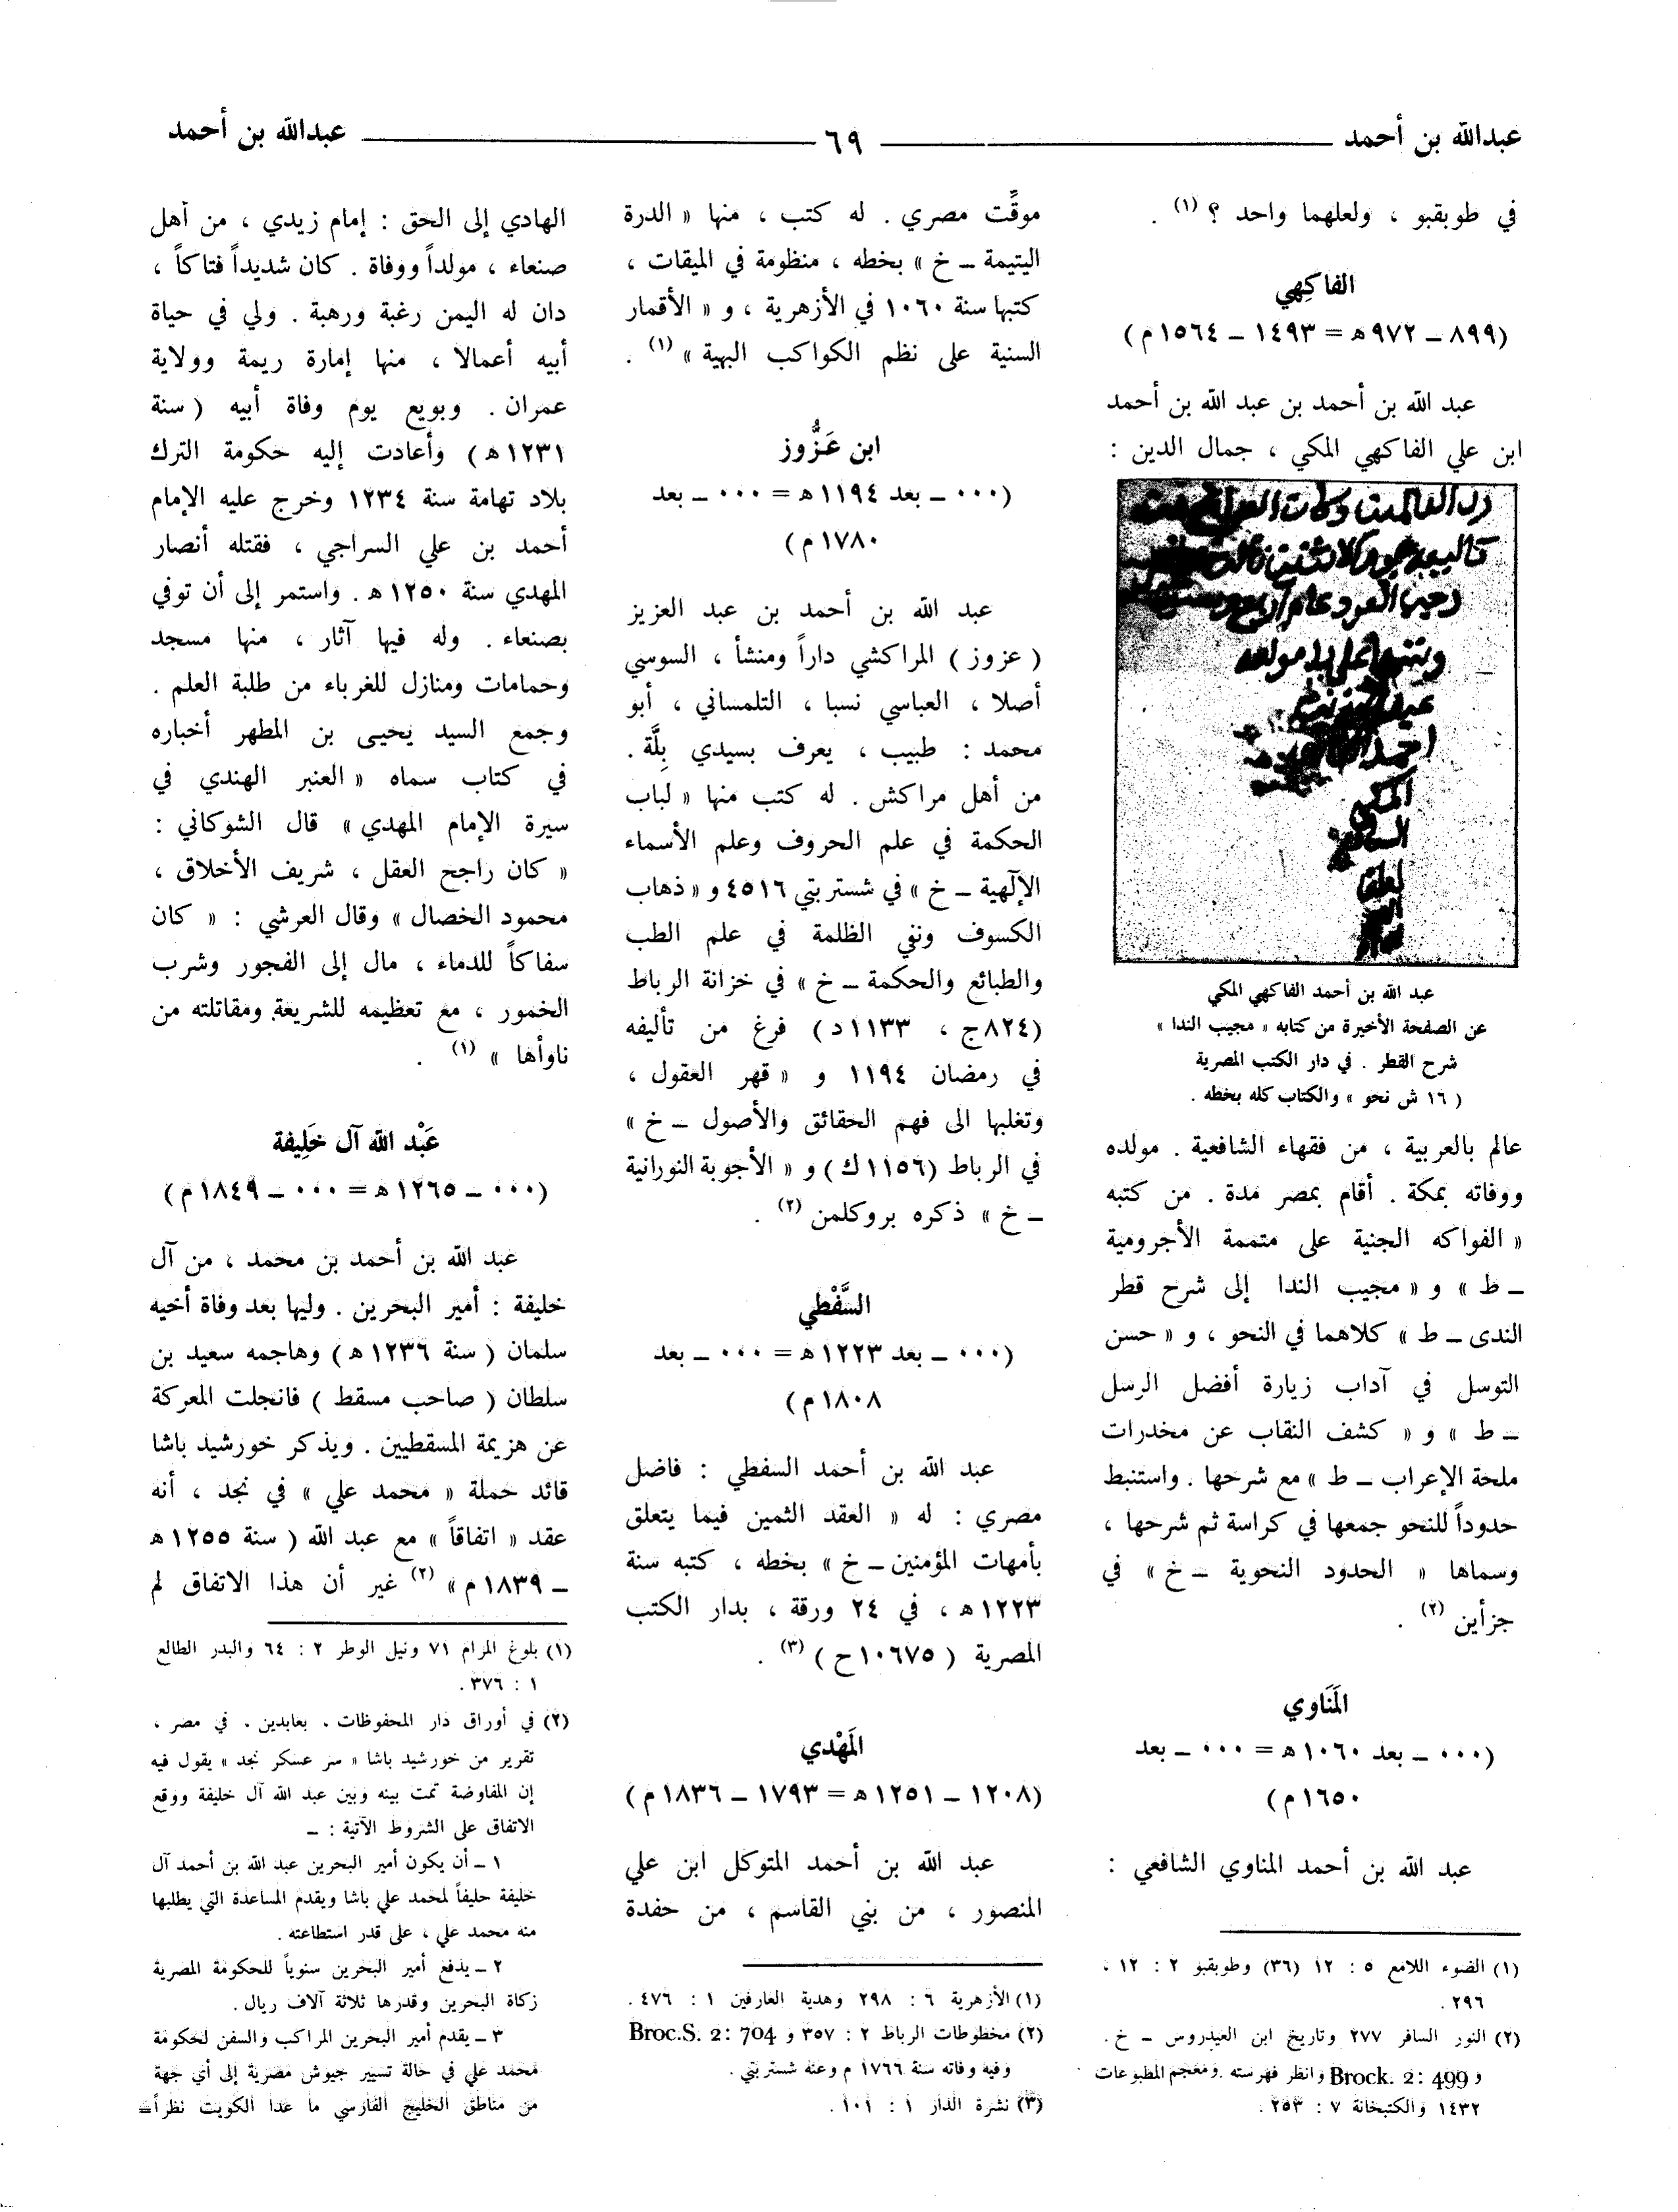 عبدالله بن أحمد
٦٩
عبدالله بن أحمد
في طوبقبو ، ولعلهما واحد ؟ (١) .
الفاكِهي
(٨٩٩ ــ ٩٧٢ هـ = ١٤٩٣ ــ ١٥٦٤ م)
عبد الله بن أحمد بن عبد الله بن أحمد
ابن علي الفاكهي المكي ، جمال الدين :
عبد الله بن أحمد الفاكهي المكي
عن الصفحة الأخيرة من كتابه « مجيب الندا »
شرح القطر . في دار الكتب المصرية
( ١٦ ش نحو » والكتاب كله بخطه .
عالم بالعربية ، من فقهاء الشافعية . مولده
ووفاته بمكة . أقام بمصر مدة . من كتبه
« الفواكه الجنية على متممة الأجرومية
ــ ط » و « مجيب الندا إلى شرح قطر
الندى ــ ط » كلاهما في النحو ، و « حسن
التوسل في آداب زيارة أفضل الرسل
ــ ط » و « كشف النقاب عن مخدرات
ملحة الإعراب ــ ط » مع شرحها . واستنبط
حدوداً للنحو جمعها في كراسة ثم شرحها ،
وسماها « الحدود النحوية ــ خ » في
جزأين (٢) .
المَنَاوي
(٠٠٠ ــ بعد ١٠٦٠ هـ = ٠٠٠ ــ بعد
١٦٥٠ م)
عبد الله بن أحمد المناوي الشافعي :
(١) الضوء اللامع ٥ : ١٢ (٣٦) وطوبقبو ٢ : ١٢ ،
٢٩٦ .
(٢) النور السافر ٢٧٧ وتاريخ ابن العيدروس ــ خ .
و Brock. 2: 499 وانظر فهرسته . ومعجم المطبوعات
١٤٣٢ والكتبخانة ٧ : ٢٥٣ .
موقِّت مصري . له كتب ، منها « الدرة
اليتيمة ــ خ » بخطه ، منظومة في الميقات ،
كتبها سنة ١٠٦٠ في الأزهرية ، و « الأقمار
السنية على نظم الكواكب البهية » (١) .
ابن عَزُّوز
(٠٠٠ ــ بعد ١١٩٤ هـ = ٠٠٠ ــ بعد
١٧٨٠ م)
عبد الله بن أحمد بن عبد العزيز
( عزوز ) المراكشي داراً ومنشأ ، السوسي
أصلا ، العباسي نسبا ، التلمساني ، أبو
محمد : طبيب ، يعرف بسيدي بِلَّة .
من أهل مراكش . له كتب منها « لباب
الحكمة في علم الحروف وعلم الأسماء
الإلٓهية ــ خ » في شستربتي ٤٥١٦ و « ذهاب
الكسوف ونفي الظلمة في علم الطب
والطبائع والحكمة ــ خ » في خزانة الرباط
(٨٢٤ج ، ١١٣٣د) فرغ من تأليفه
في رمضان ١١٩٤ و « قهر العقول ،
وتغلبها الى فهم الحقائق والأصول ــ خ »
في الرباط (١١٥٦ك) و « الأجوبة النورانية
ــ خ » ذكره بروكلمن (٢) .
السَّفْطي
(٠٠٠ ــ بعد ١٢٢٣ هـ = ٠٠٠ ــ بعد
١٨٠٨ م)
عبد الله بن أحمد السفطي : فاضل
مصري : له « العقد الثمين فيما يتعلق
بأمهات المؤمنين ــ خ » بخطه ، كتبه سنة
١٢٢٣ هـ ، في ٢٤ ورقة ، بدار الكتب
المصرية ( ١٠٦٧٥ح ) (٣) .
المَهْدي
(١٢٠٨ ــ ١٢٥١ هـ = ١٧٩٣ ــ ١٨٣٦ م)
عبد الله بن أحمد المتوكل ابن علي
المنصور ، من بني القاسم ، من حفدة
(١) الأزهرية ٦ : ٢٩٨ وهدية العارفين ١ : ٤٧٦ .
(٢) مخطوطات الرباط ٢ : ٣٥٧ و Broc.S. 2: 704
وفيه وفاته سنة ١٧٦٦ م وعنه شستربتي .
(٣) نشرة الدار ١ : ١٠١ .
الهادي إلى الحق : إمام زيدي ، من أهل
صنعاء ، مولداً ووفاة . كان شديداً فتاكاً ،
دان له اليمن رغبة ورهبة . ولي في حياة
أبيه أعمالا ، منها إمارة ريمة وولاية
عمران . وبويع يوم وفاة أبيه ( سنة
١٢٣١ هـ ) وأعادت إليه حكومة الترك
بلاد تهامة سنة ١٢٣٤ وخرج عليه الإمام
أحمد بن علي السراجي ، فقتله أنصار
المهدي سنة ١٢٥٠ هـ . واستمر إلى أن توفي
بصنعاء . وله فيها آثار ، منها مسجد
وحمامات ومنازل للغرباء من طلبة العلم .
وجمع السيد يحيى بن المطهر أخباره
في كتاب سماه « العنبر الهندي في
سيرة الإمام المهدي » قال الشوكاني :
« كان راجح العقل ، شريف الأخلاق ،
محمود الخصال » وقال العرشي : « كان
سفاكاً للدماء ، مال إلى الفجور وشرب
الخمور ، مع تعظيمه للشريعة ومقاتلته من
ناوأها » (١) .
عَبْد الله آل خَلِيفة
(٠٠٠ ــ ١٢٦٥ هـ = ٠٠٠ ــ ١٨٤٩ م)
عبد الله بن أحمد بن محمد ، من آل
خليفة : أمير البحرين . وليها بعد وفاة أخيه
سلمان ( سنة ١٢٣٦ هـ ) وهاجمه سعيد بن
سلطان ( صاحب مسقط ) فانجلت المعركة
عن هزيمة المسقطيين . ويذكر خورشيد باشا
قائد حملة « محمد علي » في نجد ، أنه
عقد « اتفاقاً » مع عبد الله ( سنة ١٢٥٥ هـ
ــ ١٨٣٩ م » (٢) غير أن هذا الاتفاق لم
(١) بلوغ المرام ٧١ ونيل الوطر ٢ : ٦٤ والبدر الطالع
١ : ٣٧٦ .
(٢) في أوراق دار المحفوظات ، بعابدين ، في مصر ،
تقرير من خورشيد باشا « سر عسكر نجد » يقول فيه
إن المفاوضة تمت بينه وبين عبد الله آل خليفة ووقع
الاتفاق على الشروط الآتية : ــ
١ ــ أن يكون أمير البحرين عبد الله بن أحمد آل
خليفة حليفاً لمحمد علي باشا ويقدم المساعدة التي يطلبها
منه محمد علي ، على قدر استطاعته .
٢ ــ يدفع أمير البحرين سنوياً للحكومة المصرية
زكاة البحرين وقدرها ثلاثة آلاف ريال .
٣ ــ يقدم أمير البحرين المراكب والسفن لحكومة
محمد علي في حالة تسيير جيوش مصرية إلى أي جهة
من مناطق الخليج الفارسي ما عدا الكويت نظراً=